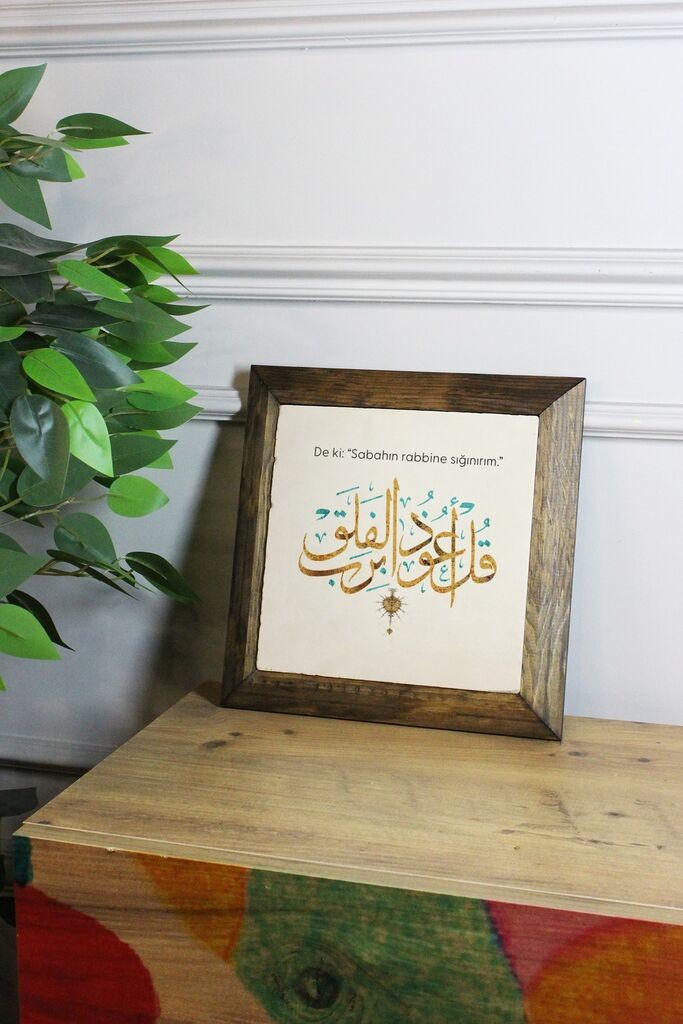 De ki: “Sabahın rabbine sığınırım.”
قُلْ أَعُوذُ بِرَبِّ الْفَلَقِ